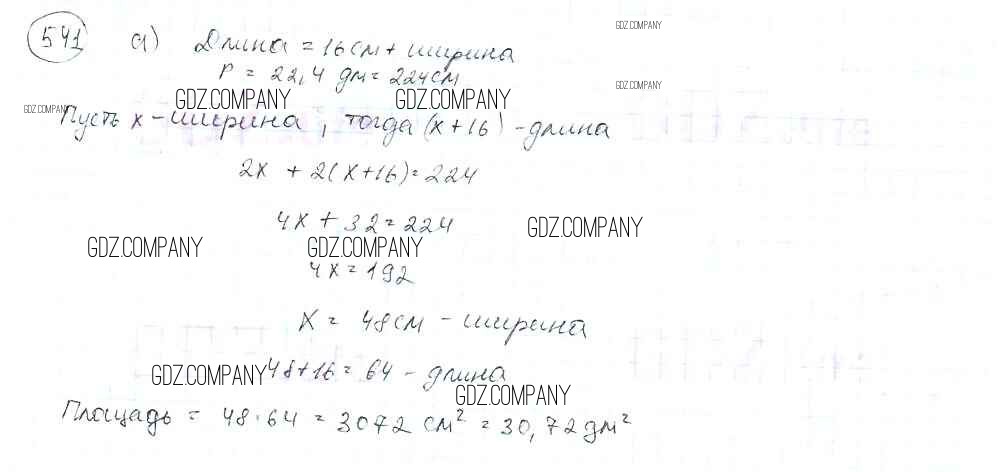 541 а) Длина = 16см + ширина
GDZ.COMPANY
P = 22,4 дм = 224см
GDZ.COMPANY
GDZ.COMPANY GDZ.COMPANY
GDZ.COMPANY
Пусть x - ширина, тогда (x+16) - длина
2x + 2(x+16) = 224
4x + 32 = 224
GDZ.COMPANY
GDZ.COMPANY GDZ.COMPANY
4x = 192
x = 48см - ширина
48+16 = 64 - длина
GDZ.COMPANY
GDZ.COMPANY
Площадь = 48·64 = 3072 см² = 30,72 дм²